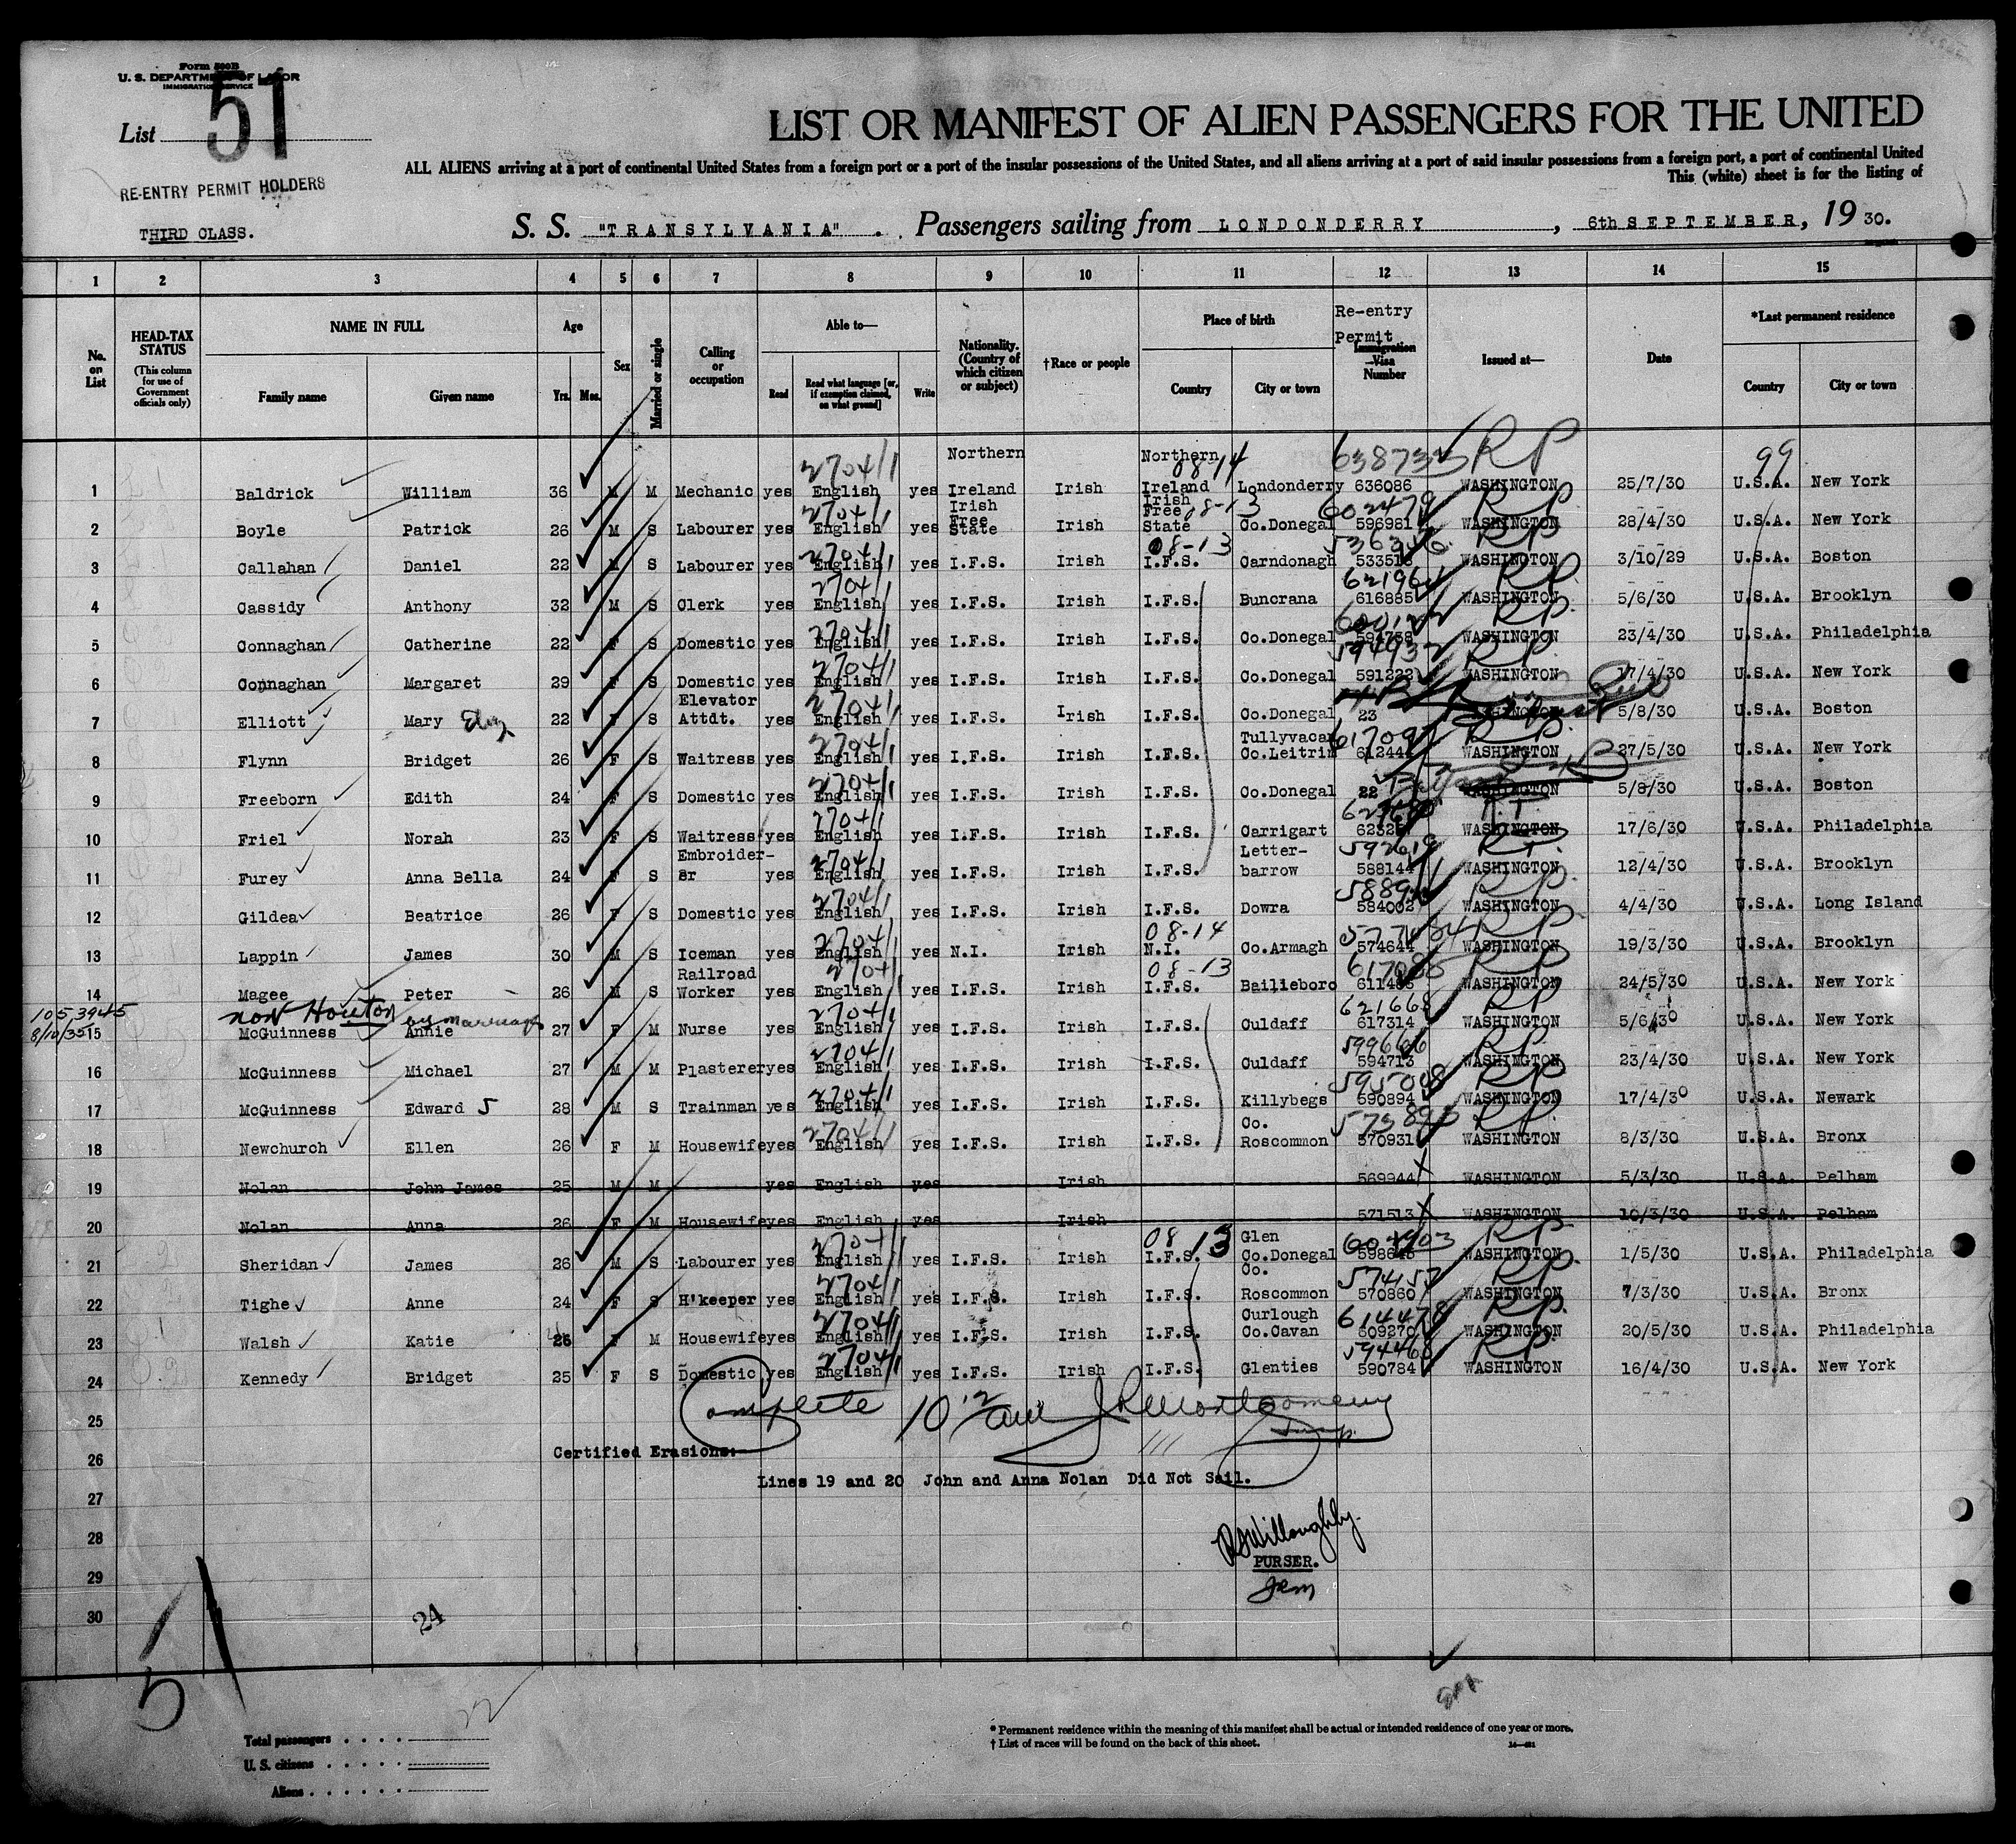 Form 500B
U. S. DEPARTMENT OF LABOR
IMMIGRATION SERVICE
List 51
RE-ENTRY PERMIT HOLDERS
THIRD CLASS.
LIST OR MANIFEST OF ALIEN PASSENGERS FOR THE UNITED
ALL ALIENS arriving at a port of continental United States from a foreign port or a port of the insular possessions of the United States, and all aliens arriving at a port of said insular possessions from a foreign port, a port of continental United
This (white) sheet is for the listing of
S. S. "TRANSYLVANIA". Passengers sailing from LONDONDERRY, 6th SEPTEMBER, 19 30.
1 2 3 4 5 6 7 8 9 10 11 12 13 14 15
No. on List
HEAD-TAX STATUS
(This column for use of Government officials only)
NAME IN FULL
Family name Given name
Age
Yrs. Mos.
Sex
Married or single
Calling or occupation
Able to—
Read Read what language [or, if exemption claimed, on what ground] Write
Nationality. (Country of which citizen or subject)
†Race or people
Place of birth
Country City or town
Re-entry Permit
Immigration Visa Number
Issued at—
Date
*Last permanent residence
Country City or town
1 Baldrick William 36 M M Mechanic yes English 2704/1 yes Northern Ireland Irish Northern Ireland 08-14 Londonderry 638733 636086 RP WASHINGTON 25/7/30 99 U.S.A. New York
2 Boyle Patrick 26 M S Labourer yes English 2704/1 yes Irish Free State Irish Irish Free State 08-13 Co.Donegal 602479 596981 RP WASHINGTON 28/4/30 U.S.A. New York
3 Callahan Daniel 22 M S Labourer yes English 2704/1 yes I.F.S. Irish I.F.S. 08-13 Carndonagh RP WASHINGTON 3/10/29 U.S.A. Boston
4 Cassidy Anthony 32 M S Clerk yes English 2704/1 yes I.F.S. Irish I.F.S. Buncrana 616885 RP WASHINGTON 5/6/30 U.S.A. Brooklyn
5 Connaghan Catherine 22 F S Domestic yes English 2704/1 yes I.F.S. Irish I.F.S. Co.Donegal 594738 RP WASHINGTON 23/4/30 U.S.A. Philadelphia
6 Connaghan Margaret 29 F S Domestic yes English 2704/1 yes I.F.S. Irish I.F.S. Co.Donegal 594932 591222 RP WASHINGTON 17/4/30 U.S.A. New York
7 Elliott Mary Eliz 22 F S Elevator Attdt. yes English 2704/1 yes I.F.S. Irish I.F.S. Co.Donegal 23 WASHINGTON 5/8/30 U.S.A. Boston
8 Flynn Bridget 26 F S Waitress yes English 2704/1 yes I.F.S. Irish I.F.S. Tullyvacan Co.Leitrim RP WASHINGTON 27/5/30 U.S.A. New York
9 Freeborn Edith 24 F S Domestic yes English 2704/1 yes I.F.S. Irish I.F.S. Co.Donegal 22 WASHINGTON 5/8/30 U.S.A. Boston
10 Friel Norah 23 F S Waitress yes English 2704/1 yes I.F.S. Irish I.F.S. Carrigart WASHINGTON 17/6/30 U.S.A. Philadelphia
11 Furey Anna Bella 24 F S Embroider-er yes English 2704/1 yes I.F.S. Irish I.F.S. Letter-barrow 592619 588144 WASHINGTON 12/4/30 U.S.A. Brooklyn
12 Gildea Beatrice 26 F S Domestic yes English 2704/1 yes I.F.S. Irish I.F.S. Dowra 584002 RP WASHINGTON 4/4/30 U.S.A. Long Island
13 Lappin James 30 M S Iceman yes English 2704/1 yes N.I. Irish N.I. 08-14 Co.Armagh 574644 RP WASHINGTON 19/3/30 U.S.A. Brooklyn
14 Magee Peter 26 M S Railroad Worker yes English 2704/1 yes I.F.S. Irish I.F.S. 08-13 Bailieboro RP WASHINGTON 24/5/30 U.S.A. New York
now Houton by marriage
105 39445
8/10/35
15 McGuinness Annie 27 F M Nurse yes English 2704/1 yes I.F.S. Irish I.F.S. Culdaff 621668 617314 RP WASHINGTON 5/6/30 U.S.A. New York
16 McGuinness Michael 27 M M Plasterer yes English 2704/1 yes I.F.S. Irish I.F.S. Culdaff 599666 594713 RP WASHINGTON 23/4/30 U.S.A. New York
17 McGuinness Edward J 28 M S Trainman yes English 2704/1 yes I.F.S. Irish I.F.S. Killybegs 595008 590894 RP WASHINGTON 17/4/30 U.S.A. Newark
18 Newchurch Ellen 26 F M Housewife yes English 2704/1 yes I.F.S. Irish I.F.S. Co. Roscommon 570931 RP WASHINGTON 8/3/30 U.S.A. Bronx
19 Nolan John James 25 M M yes English yes Irish 569944 WASHINGTON 5/3/30 U.S.A. Pelham
20 Nolan Anna 26 F M Housewife yes English yes Irish 571513 WASHINGTON 10/3/30 U.S.A. Pelham
21 Sheridan James 26 M S Labourer yes English 2704/1 yes I.F.S. Irish I.F.S. 08 13 Glen Co.Donegal RP WASHINGTON 1/5/30 U.S.A. Philadelphia
22 Tighe Anne 24 F S H'keeper yes English 2704/1 yes I.F.S. Irish I.F.S. Co. Roscommon 574157 570860 RP WASHINGTON 7/3/30 U.S.A. Bronx
23 Walsh Katie 26 F M Housewife yes English 2704/1 yes I.F.S. Irish I.F.S. Curlough Co.Cavan 614478 609270 RP WASHINGTON 20/5/30 U.S.A. Philadelphia
24 Kennedy Bridget 25 F S Domestic yes English 2704/1 yes I.F.S. Irish I.F.S. Glenties 594468 590784 RP WASHINGTON 16/4/30 U.S.A. New York
25 Complete 10 12 am J R Montgomery Insp.
26 Certified Erasions:
Lines 19 and 20 John and Anna Nolan Did Not Sail.
27
28 Willoughby.
PURSER.
29
30 24
51
22
Total passengers
U. S. citizens
Aliens
* Permanent residence within the meaning of this manifest shall be actual or intended residence of one year or more.
† List of races will be found on the back of this sheet.